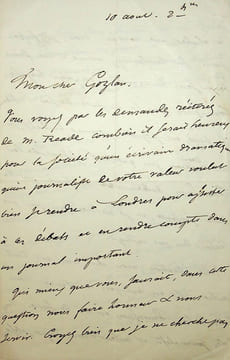 10 aout.
Mon cher Gozlan.
Vous voyez par les demandes réitérées
de M. Reade combien il serait heureux
pour la société qu'un écrivain dramatique
qu'un journaliste de votre valeur voulut
bien se rendre à Londres pour assister
à ces débats et en rendre compte dans
un journal important.
qui mieux que vous, saurait, dans cette
question nous faire honneur & nous
servir. Croyez bien que je ne cherche pas